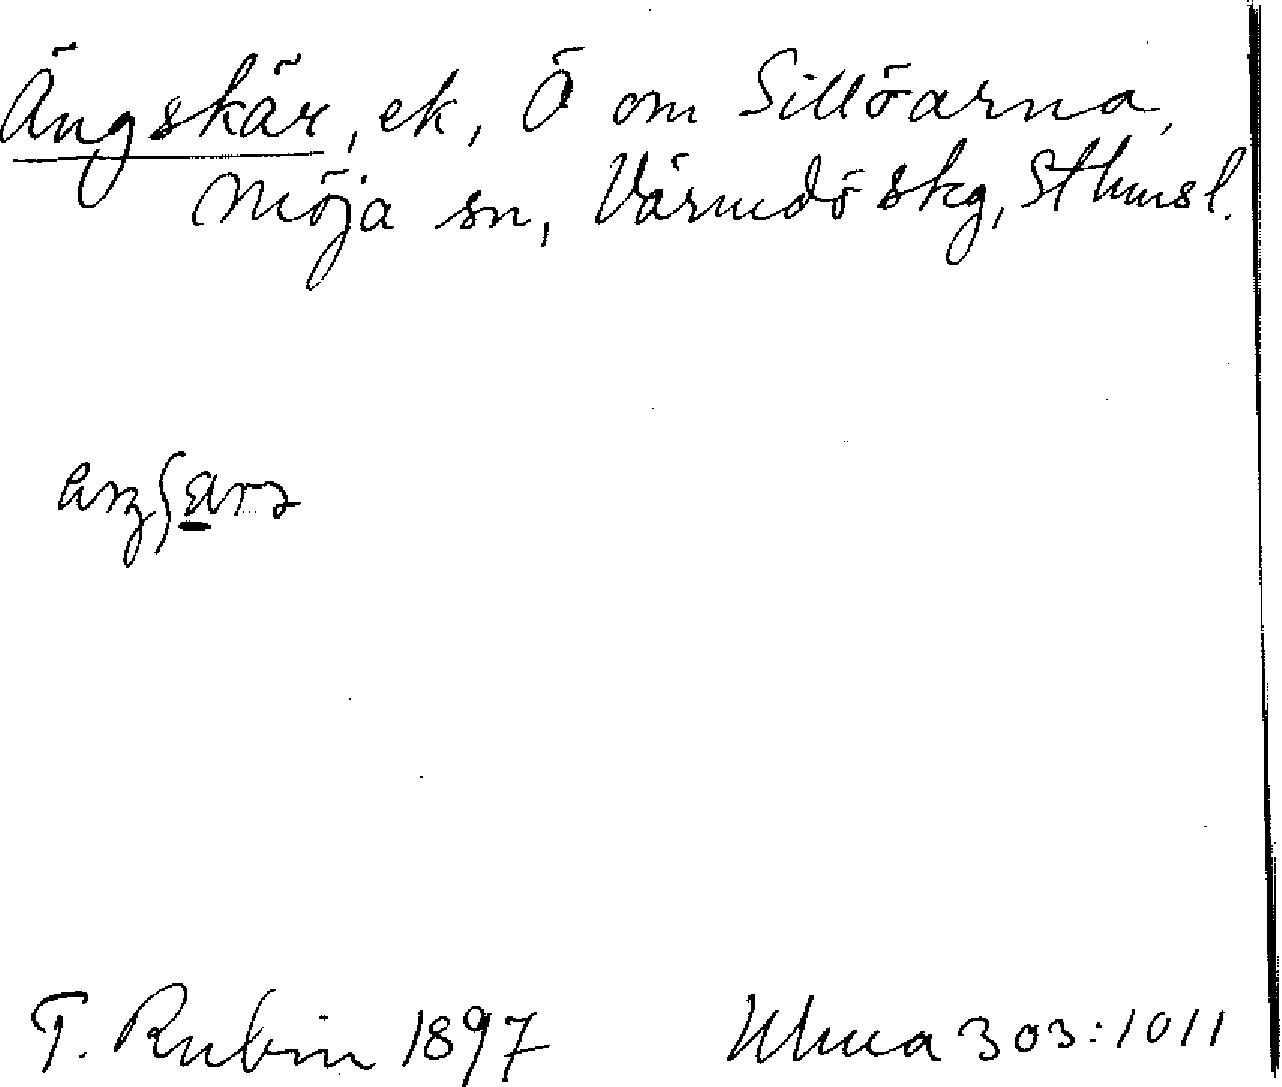 Ängskär, ek, Ö om Sillöarna,
Möja sn, Värmdö skg, Sthmsl.
T. Rubin 1897 Uluua 303:1011